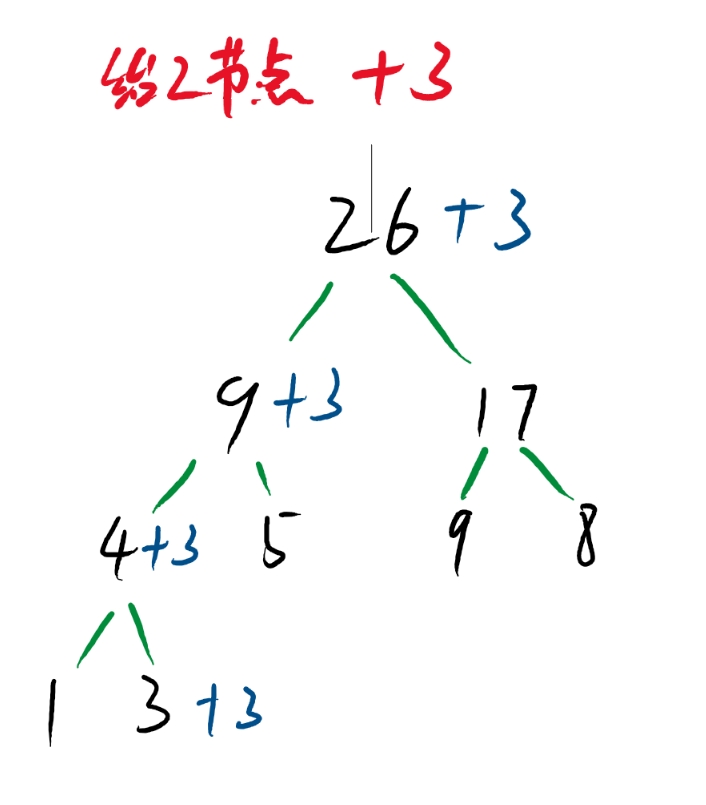 给2节点 +3
26 +3
9 +3 17
4 +3 5 9 8
1 3 +3